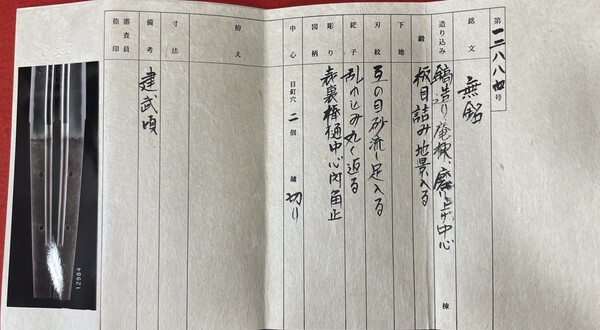 第一二八八四号
銘文 無銘
造り込み 鎬造り庵棟、磨り上げ中心 棟
鍛 板目詰み地景入る
下地
刃紋 互の目砂流し足入る
鋩子 乱れ込み丸く返る
彫り
図柄 表裏棒樋中心内角止
中心 目釘穴 二個 鑢 切り
拵え
寸法
備考 建武頃
審査員
捺印
12984